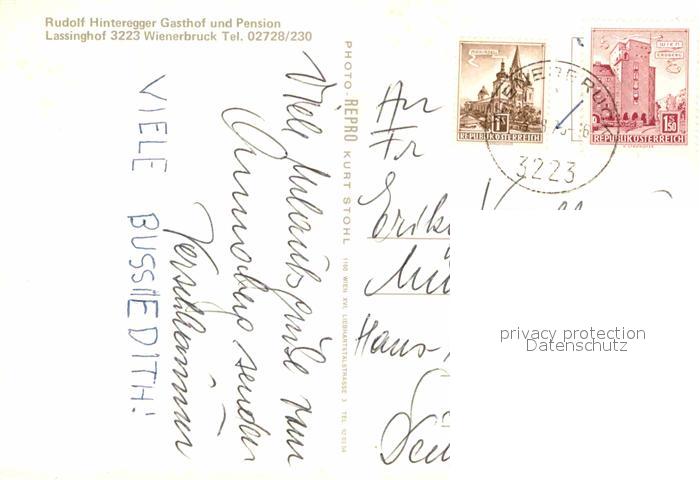 Rudolf Hinteregger Gasthof und Pension
Lassinghof 3223 Wienerbruck Tel. 02728/230
Viele Urlaubsgrüße vom
Annaberg senden
VIELE BUSSI EDITH!
PHOTO-REPRO KURT STOHL 1160 WIEN XVI, LIEBHARTSTALSTRASSE 3 TEL.
An
Fr
Erik
Mü
Haus
MARIAZELL
1S
REPUBLIK ÖSTERREICH
WIEN
ERDBERG
1.50
REPUBLIK ÖSTERREICH
WIENERBRUCK
3223
privacy protection
Datenschutz